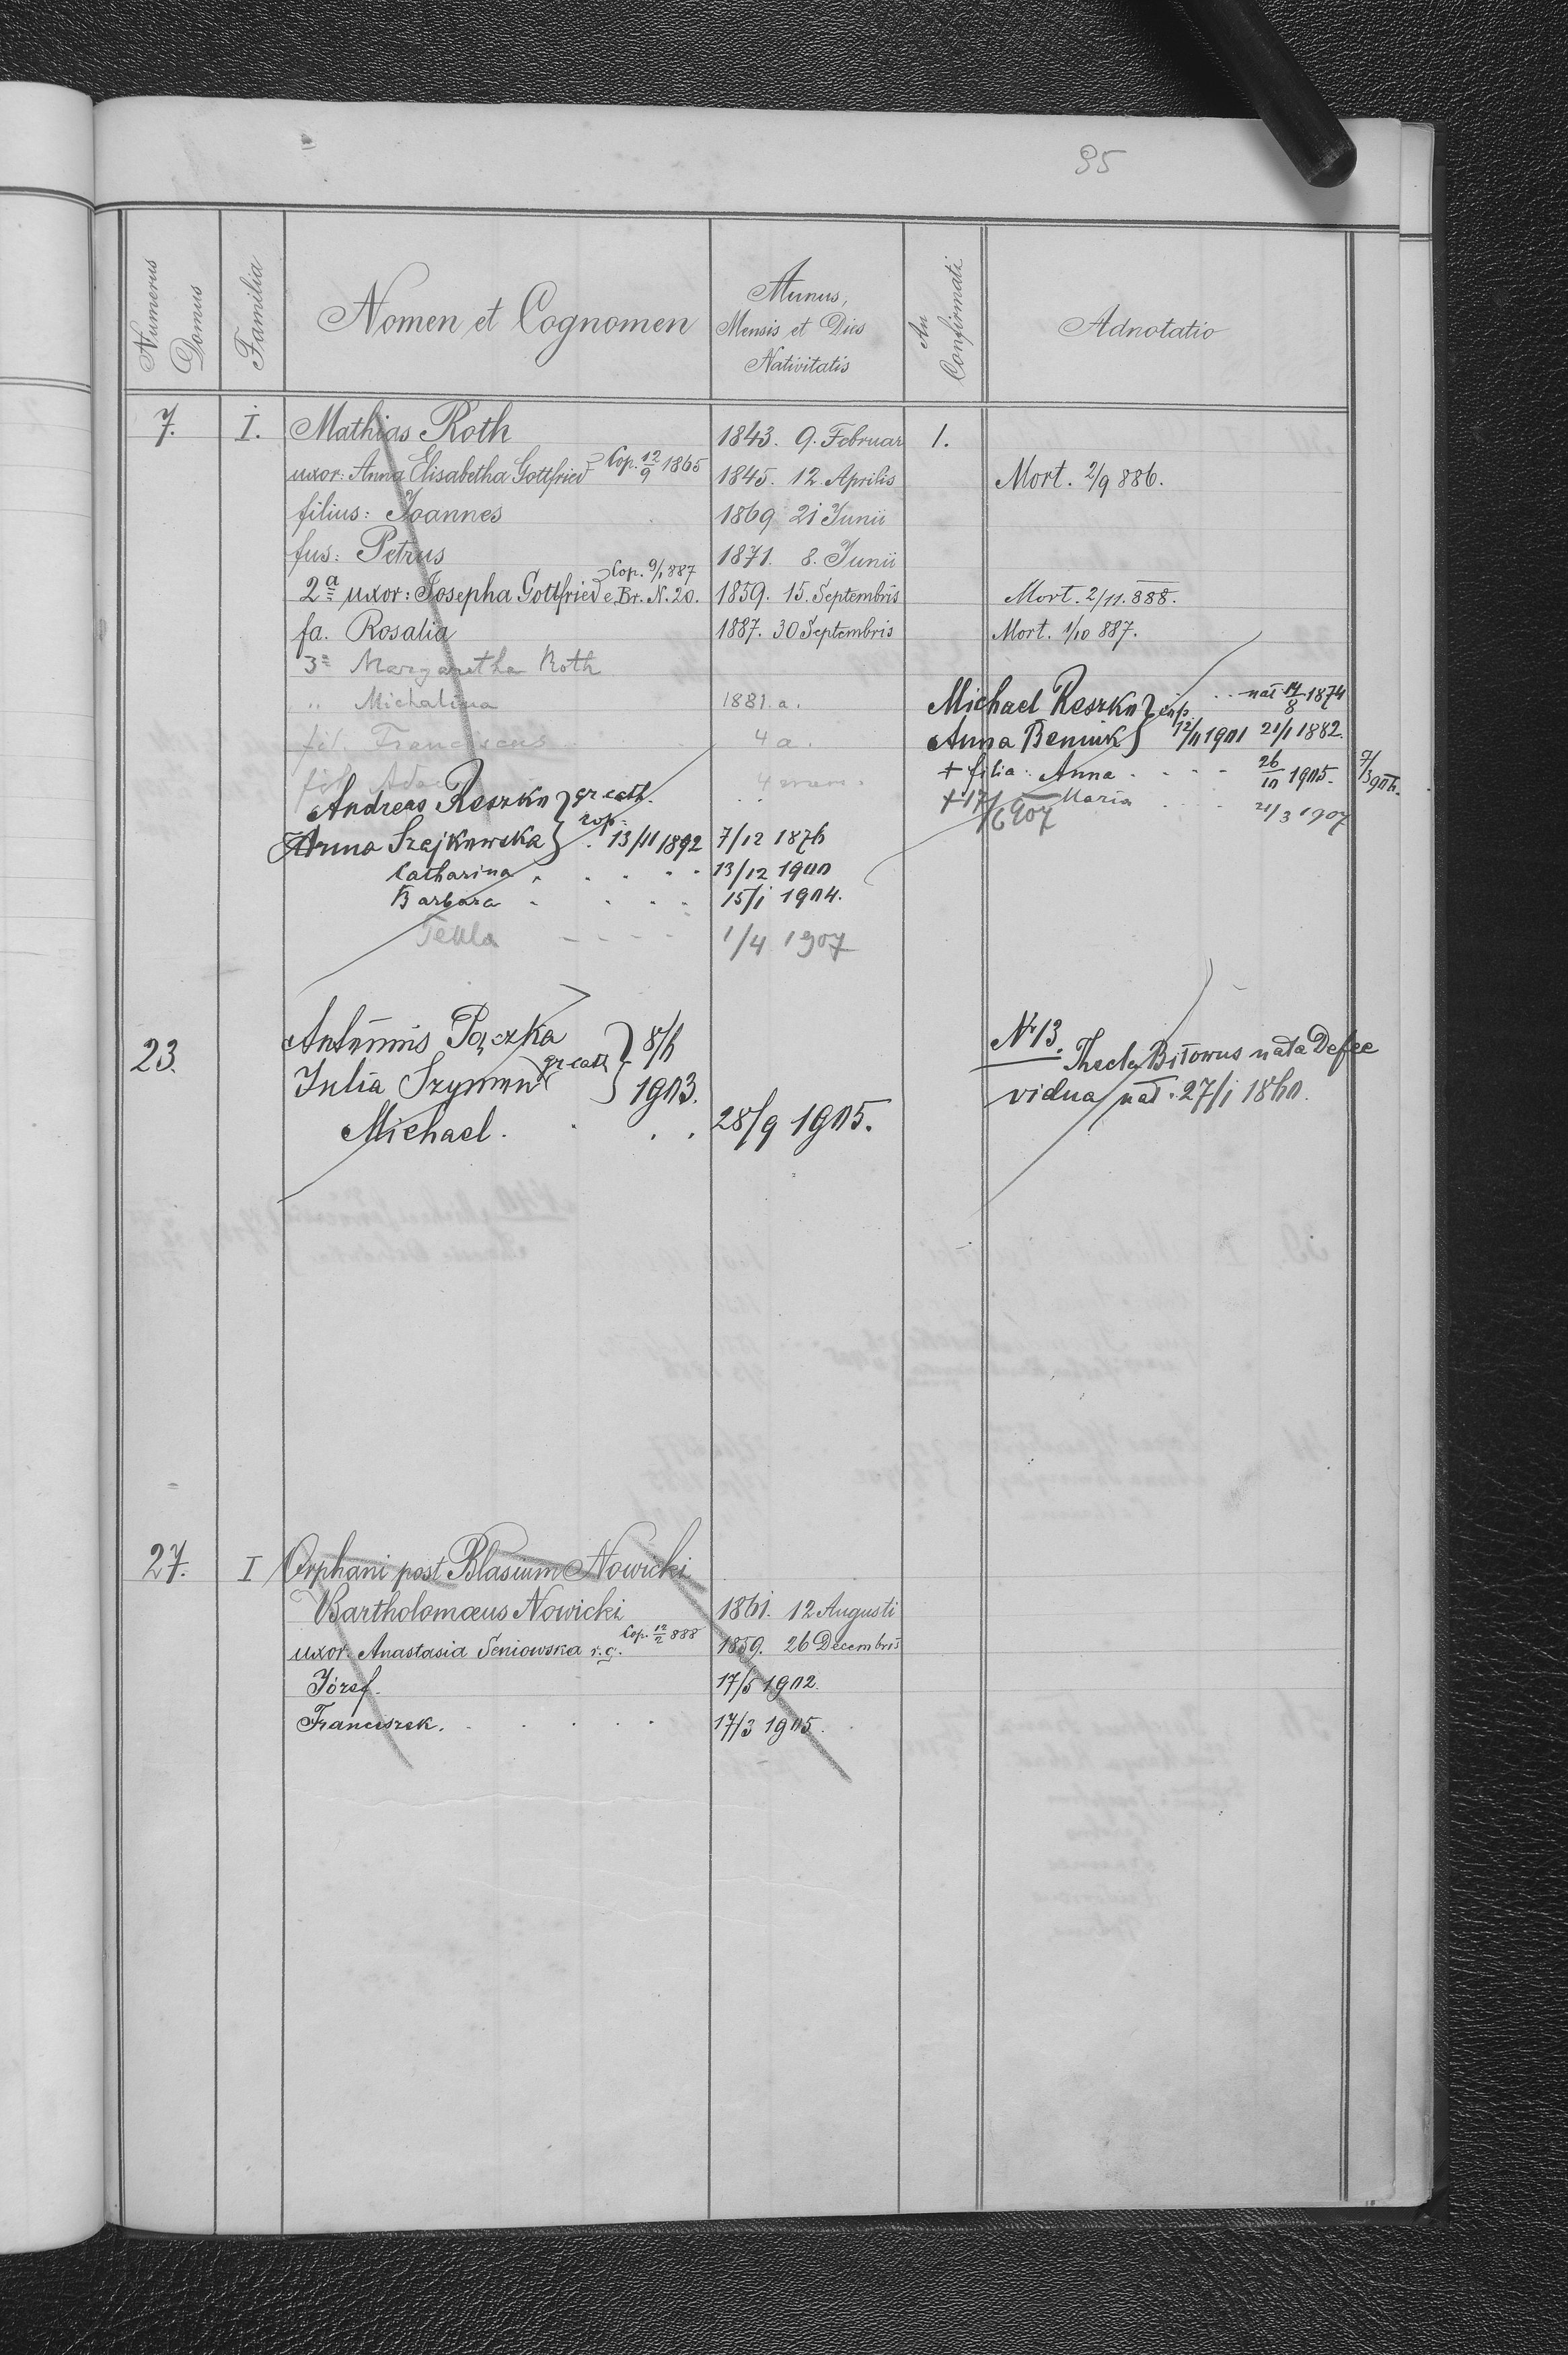 95
Numerus Domus
Familia
Nomen et Cognomen
Annus, Mensis et Dies Nativitatis
An Confirmati
Adnotatio
7. I. Mathias Roth 1843. 9. Februar 1.
uxor: Anna Elisabetha Gottfried Cop. 12/9 1865 1845. 12. Aprilis Mort. 2/9 886.
filius: Joannes 1869 21 Junii
fus: Petrus 1871. 8. Junii
2a uxor: Josepha Gottfried e Br. N. 20. Cop. 9/1 887 1859. 15. Septembris Mort. 2/11. 888.
fa. Rosalia 1887. 30 Septembris Mort. 1/10 887.
3a Margaretha Roth
" Michalina 1881. a.
fil. Franciscus 4 a.
fil. Ada
Michael Reszko nat 14/8 1874
Anna Beniuk 12/11 1901 21/1 1882.
+ filia: Anna 26/10 1905. 7/3 906.
+ 17/6 907 Maria 21/3 1907
Andreas Reszko gr. cath.
Anna Szajkowska cop. 13/11 1892 7/12 1876
Catharina 13/12 1900
Barbara 15/1 1904.
Tekla 1/4 1907
23. Antonius Pączka 8/6
Julia Szymon gr cath 1903.
Michael. 28/9 1905.
Nr 13.
Thecla Bitowus nata Defee
vidua nat. 27/1 1860.
27. I Orphani post Blasium Nowicki
Bartholomæus Nowicki 1861. 12 Augusti
uxor. Anastasia Seniowska r. g. Cop. 12/2 888 1859. 26 Decembris
Józef. 17/5 1902.
Franciszek. 17/3 1905.